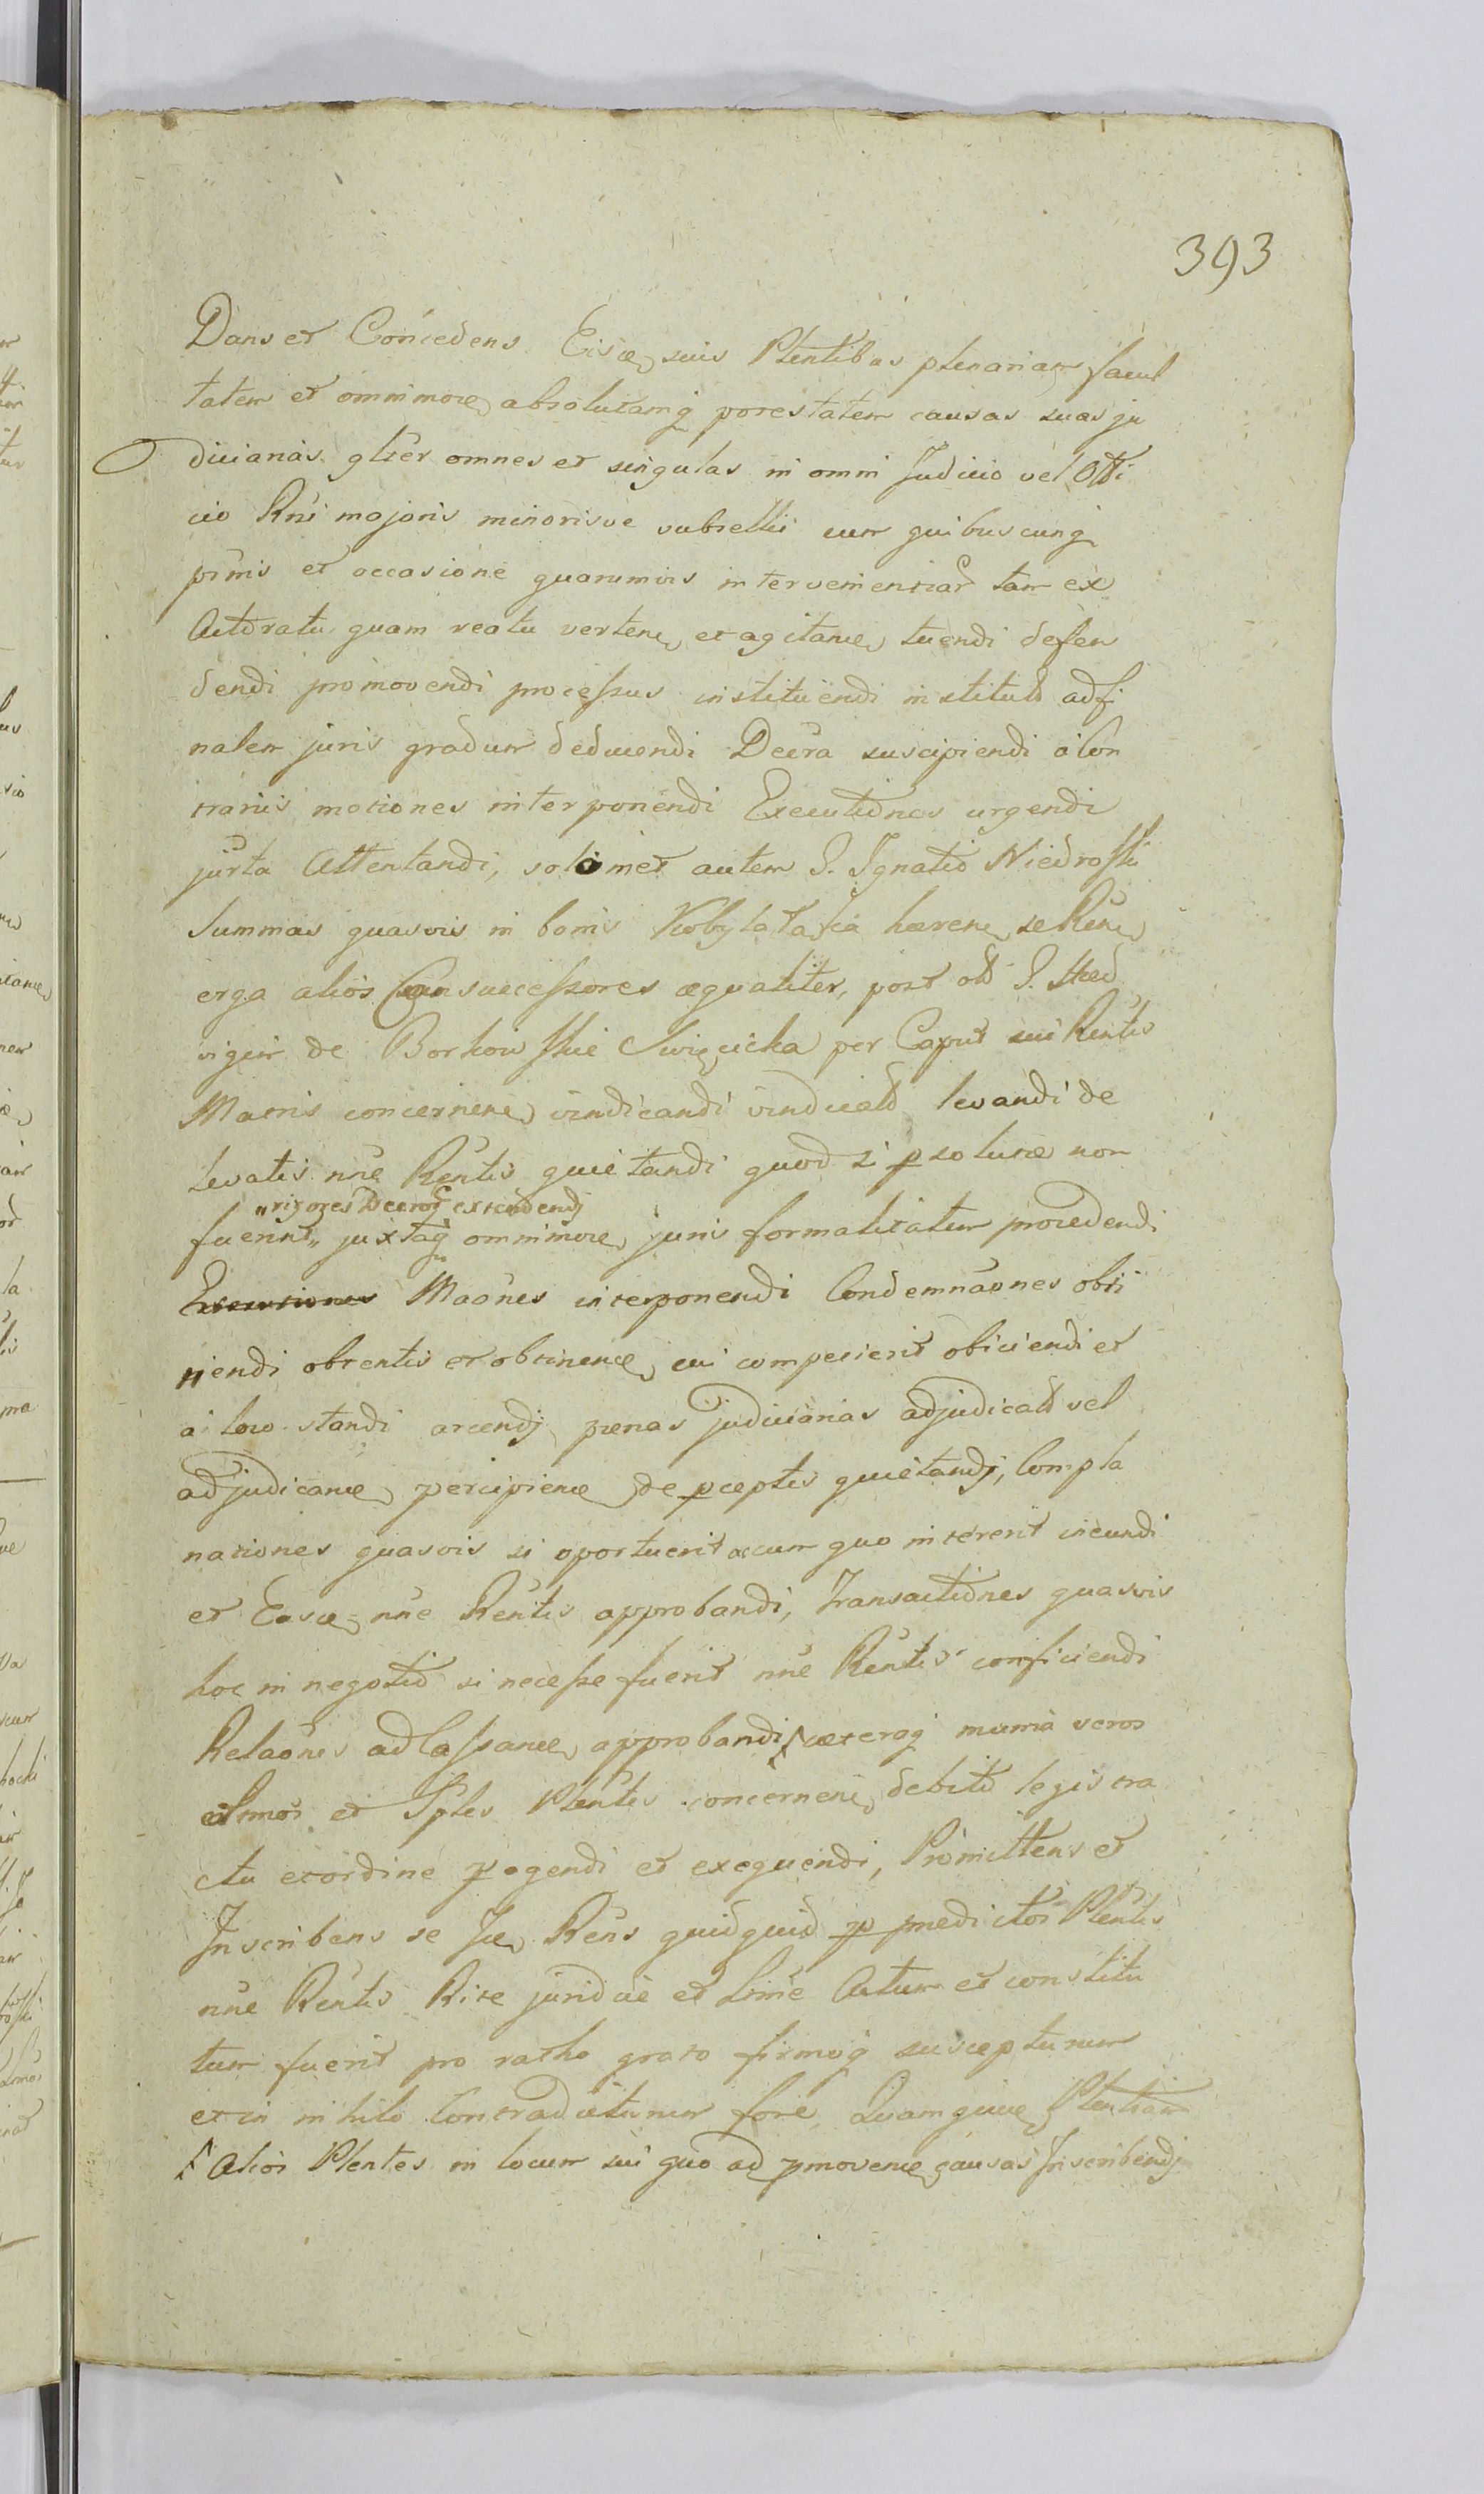 393
Dans et Concedens Eisce suis Plentibus plenariam facul
tatem et omnimoe absolutamq potestatem causas suas ju
diciarias glter omnes et singulas in omni Judicio vel Offi
cio Rni majoris minorisve subsellii cum quibuscunq
prnis et occasione quarumvis intervenientiar tam ex
Actoratu quam reatu verten et agitan tuendi defen
dendi promovendi processus instituendi institut ad fi
nalem juris gradum deducendi Decra suscipiendi a Con
trariis motiones interponendi Executiones urgendi
jurta Attentandi, solimet autem G. Ignatio Niedroski
Summas quasvis in bonis haeren se
erga alios Consuccessores aequaliter, post ol G. Hed
vigim de Borkowskie Swięcicka per Caput sui Rentis
Matris concernen vindicandi vindicat levandi de
levatis nne Rentis quietandi quod si psolutae non
"rigores Decror extendendj
fuerint" juxtaq omnimoe juris formalitatem procedendi
Executiones Maones interponendi Condemnaones obti
nendi obtentis et obtinen cui competierit obiciendi et
a loco standi arcendj paenas judiciarias adjudicat vel
adjudican percipien de pceptis quietandj, Compla
nationes quasvis si oportuerit ac cum quo intererit ineundi
et Easce nne Rentis approbandi, Transactiones quasvis
hoc in negotio si necesse fuerit nne Rentis conficiendi
Relaones ad approbandi caeteraq munia veros
et Plentes concernen debito legis tra
ctu et ordine pagendi et exequendi, Promittens et
Inscribens se Ice Rens quidquid p praedictos Plentes
nne Rentis Rite juridice et Lime Actum et constitu
tum fuerit pro ratho grato firmoq suscepturum
et in nihilo Contradicturum fore, Quamquae Plentiam
Alios Plentes in locum sui quo ad pmoven causas Inscribendj